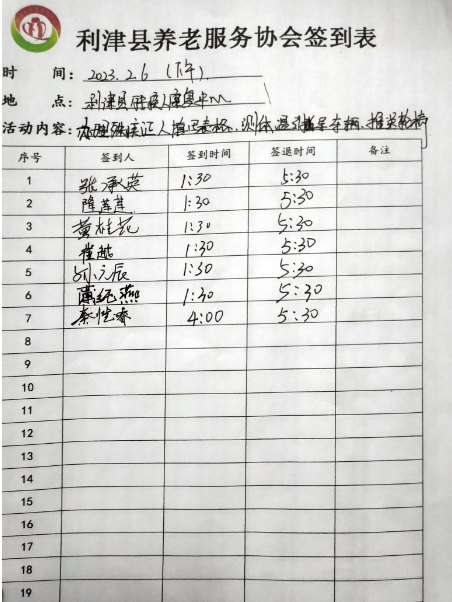 利津县养老服务协会签到表
时 间：2023.2.6 (下午)
地 点：利津县残疾人康复中心
活动内容：办理残疾证人填写表格、测体温、指挥车辆、推送轮椅
序号 签到人 签到时间 签退时间 备注
1 张承英 1:30 5:30
2 隆莲莲 1:30 5:30
3 黄桂花 1:30 5:30
4 崔越 1:30 5:30
5 孙元辰 1:30 5:30
6 燕 1:30 5:30
7 秦性春 4:00 5:30
8
9
10
11
12
13
14
15
16
17
18
19